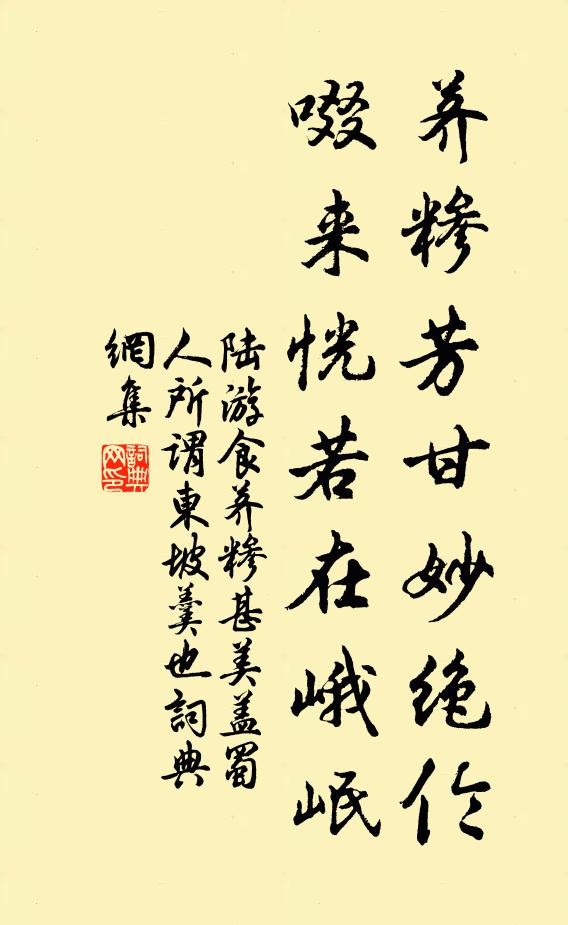 荠糁芳甘妙绝伦
啜来恍若在峨岷
陆游食荠糁甚美盖蜀
人所謂東坡羹也詞典
網集
詞典
网印